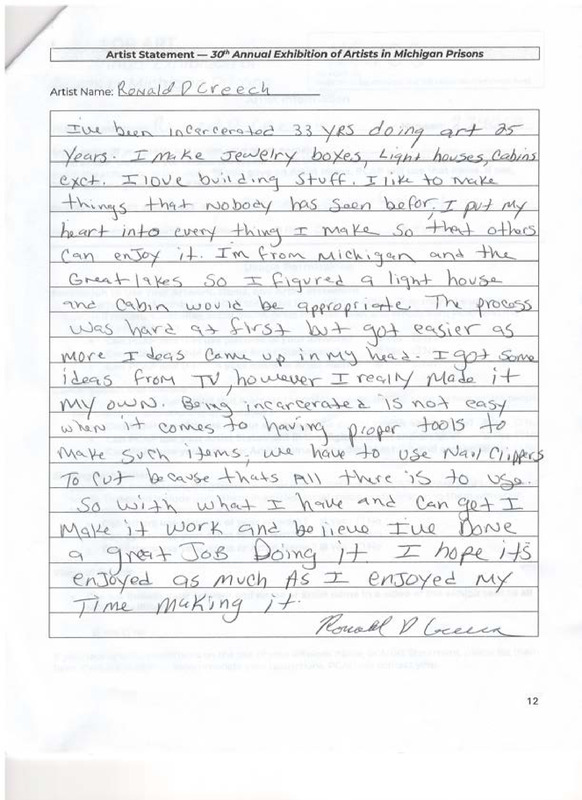 Artist Statement — 30th Annual Exhibition of Artists in Michigan Prisons
Artist Name: Ronald D Creech
I've been incarcerated 33 YRS doing art 25
Years. I make Jewelry boxes, Light houses, Cabins
exct. I love building Stuff. I like to make
things that Nobody has Seen befor, I put my
heart into every thing I make So that others
Can enjoy it. I'm from Michigan and the
Great lakes So I figured a light house
and Cabin would be appropriate. The process
was hard at first but got easier as
more Ideas Came up in my head. I got Some
ideas from TV, however I really Made it
My own. Being incarcerated is not easy
when it comes to having proper tools to
Make Such items, we have to use Nail Clippers
To Cut because thats All there is to use.
So with what I have and Can get I
Make it work and believe I've Done
a great Job Doing it. I hope its
enjoyed as much As I enjoyed My
Time Making it.
Ronald D Creech
12